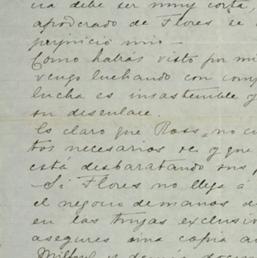 cia debe ser muy corta,
apoderado de Flores se
perjuicio mio—
Como habrás visto por mi
vengo luchando con com
lucha es insostenible y
su desenlace.
Es claro que Ross, no cu
tos necesarios de y que
está desbaratando sus p
Si Flores no llega á
el negocio de manos d
en las tuyas exclusiv
asegures una copia au